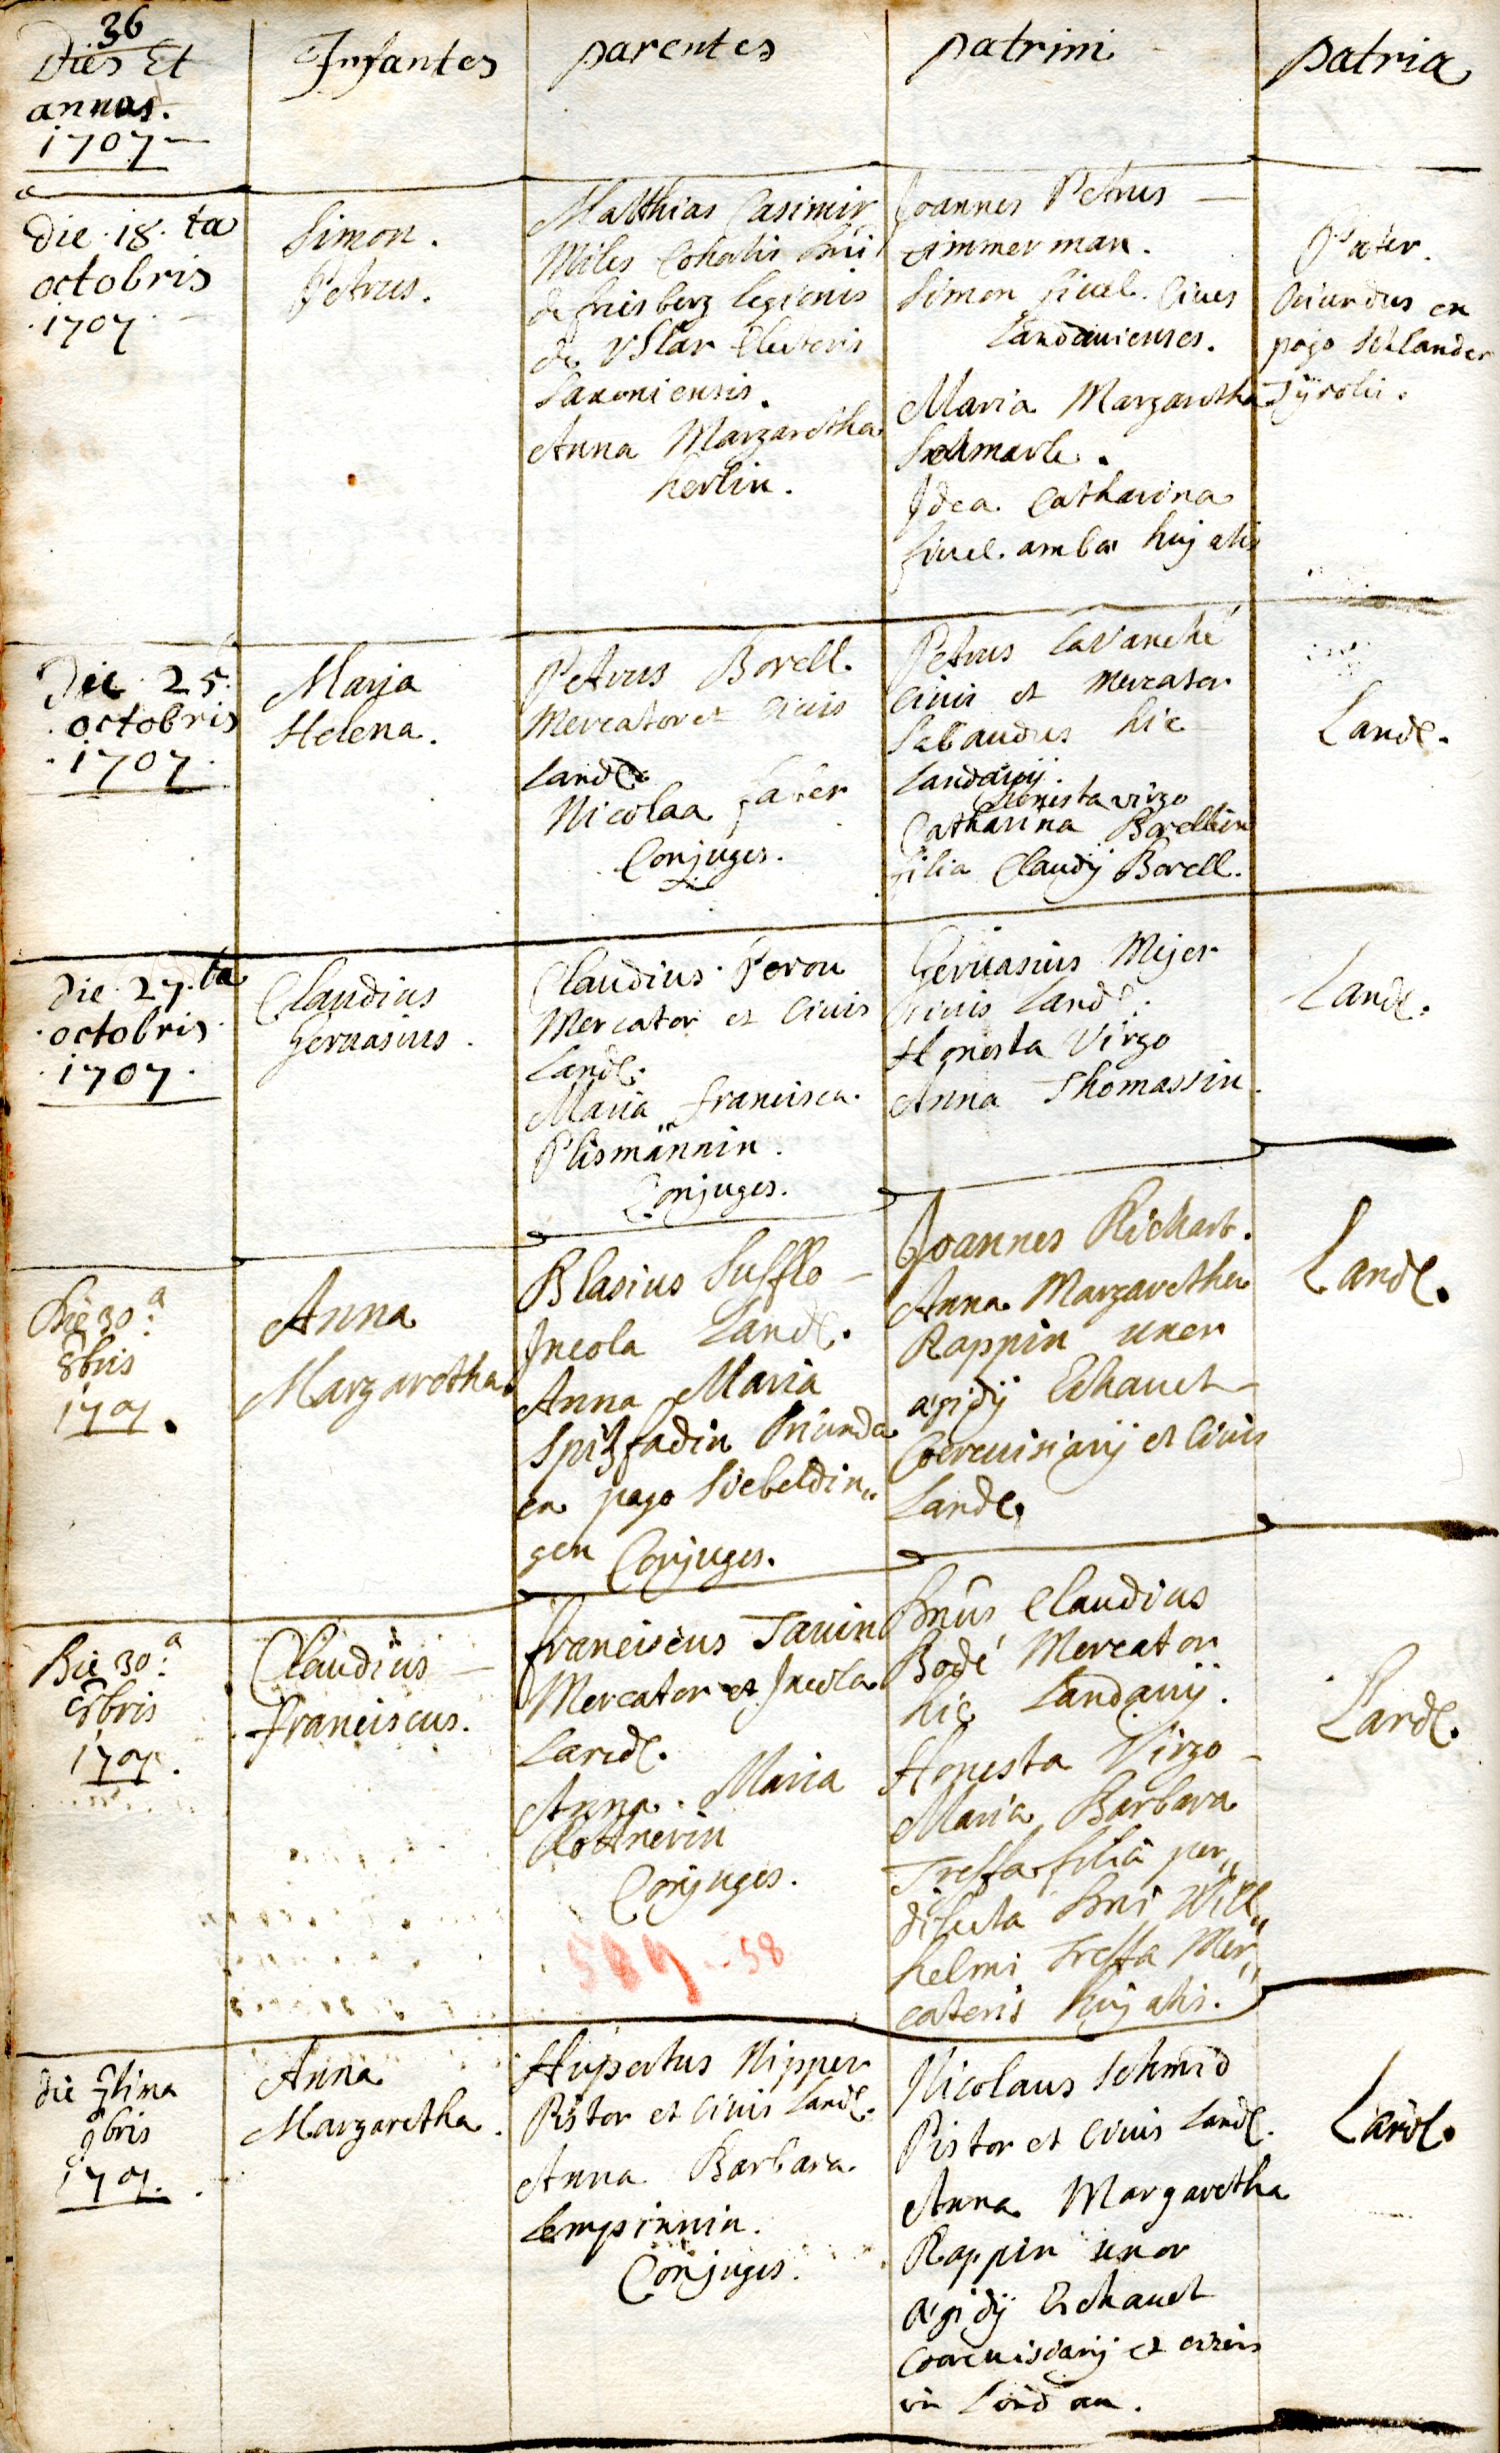 36
Dies Et
annus.
1707
Infantes
parentes
patrini
patria
die 18.ta
octobris
1707
Simon.
Petrus.
Matthias Casimir
Miles Cohortis Dni
de frisberg legionis
de VSlar Electoris
Saxoniensis.
Anna Margaretha
herlin.
Joannes Petrus
Zimmerman.
Simon fivel. Cives
Landavienses.
Maria Margaretha
Idea Catharina
fivel. ambæ hujatis
Pater.
Oriundus ex
pago Schlander
Tÿrolis.
Die 25.
octobris
1707.
Maria
Helena.
Petrus Borell.
Mercator et Civis
Land.
Nicolaa faber
Conjuges.
Petrus LaVanché
Civis et Mercator
Sabaudus hic
Landavij.
honesta virgo
Catharina Borellin
filia Claudij Borell.
Land.
Die 27.ta
octobris
1707.
Claudius
Gervasius.
Claudius Perou
Mercator et Civis
Land.
Maria francisca
Plismännin.
Conjuges.
Gervasius Mejer
Civis Land.
Honesta Virgo
Anna Thomassin.
Land.
Die 30.a
8bris
1707.
Anna
Margaretha.
Blasius Sufflo
Incola Land.
Anna Maria
Spitzfadin Oriunda
ex pago Siebeldin„
gen Conjuges.
Joannes Richart.
Anna Margaretha
Rappin uxor
ægidÿ Echauet
Coërevisiarij et Civis
Land.
Land.
Die 30.a
8bris
1707.
Claudius
franciscus.
franciscus Tavin
Mercator et Incola
Land.
Anna Maria
Rottnerin
Conjuges.
589-58
Dnûs Claudius
Bodé Mercator
hic Landavij.
Honesta Virgo
Maria Barbara
Treffa filia per„
dilecta Dni Wil„
helmi Treffa Mer„
catoris hujatis.
Land.
die 7tima
9bris
1707.
Anna
Margaretha.
Hupertus Nipper
Pistor et Civis Land.
Anna Barbara
Lempinnin.
Conjuges.
Nicolaus Schmid
Pistor et Civis Land.
Anna Margaretha
Rappin uxor
ægidÿ Echauet
Coërevisiarij et civis
in Landau.
Land.